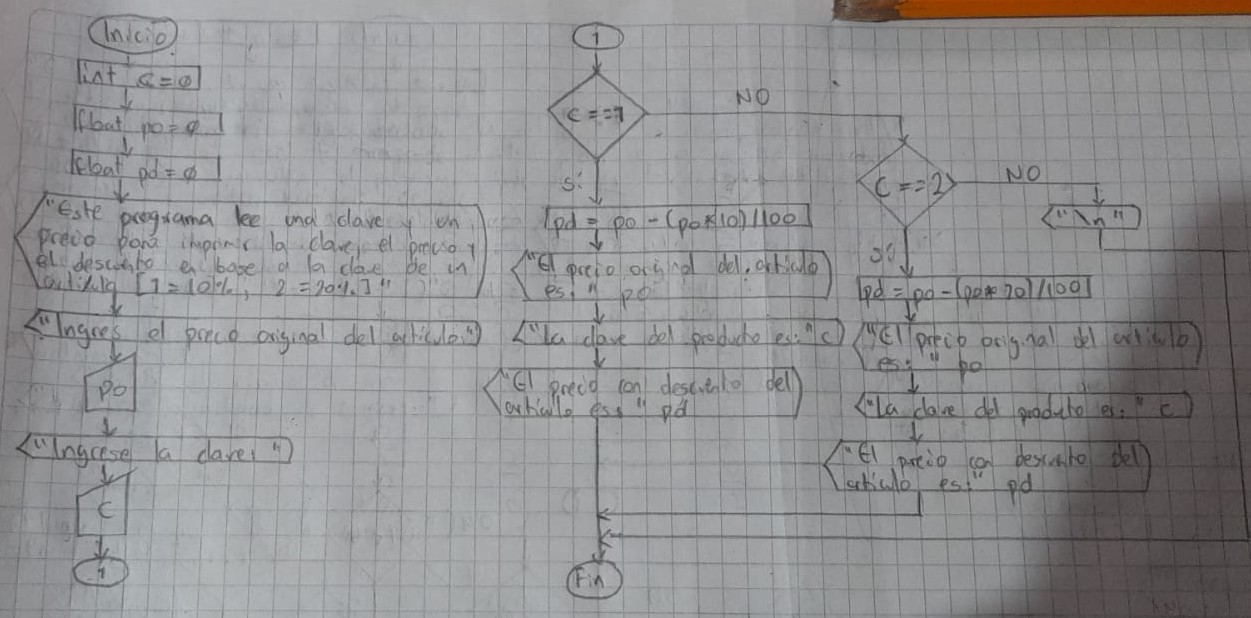 Inicio
int c=0
float po=0
float pd=0
"Este programa lee una clave y un
precio para imprimir la clave, el precio y
el descuento en base a la clave de un
articulo [1=10%, 2=20%]"
"Ingres el preco original del articulo:"
po
"Ingrese la clave: "
c
1
1
c==1
NO
si
pd = po-(po*10)/100
"El precio original del articulo
es:" po
"La clave del producto es:" c
"El precio con descuento del
articulo es:" pd
Fin
c==2
NO
"\n"
si
pd=po-(po*20)/100
"El precio original del articulo
es:" po
"La clave del producto es:" c
"El precio con descuento del
articulo es:" pd